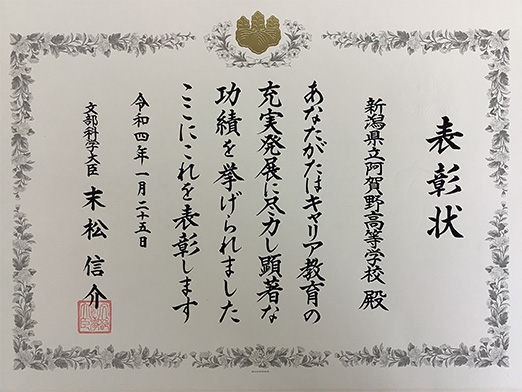 表彰状
新潟県立阿賀野高等学校 殿
あなたがたはキャリア教育の
充実発展に尽力し顕著な
功績を挙げられました
ここにこれを表彰します
令和四年一月二十五日
文部科学大臣 末松信介